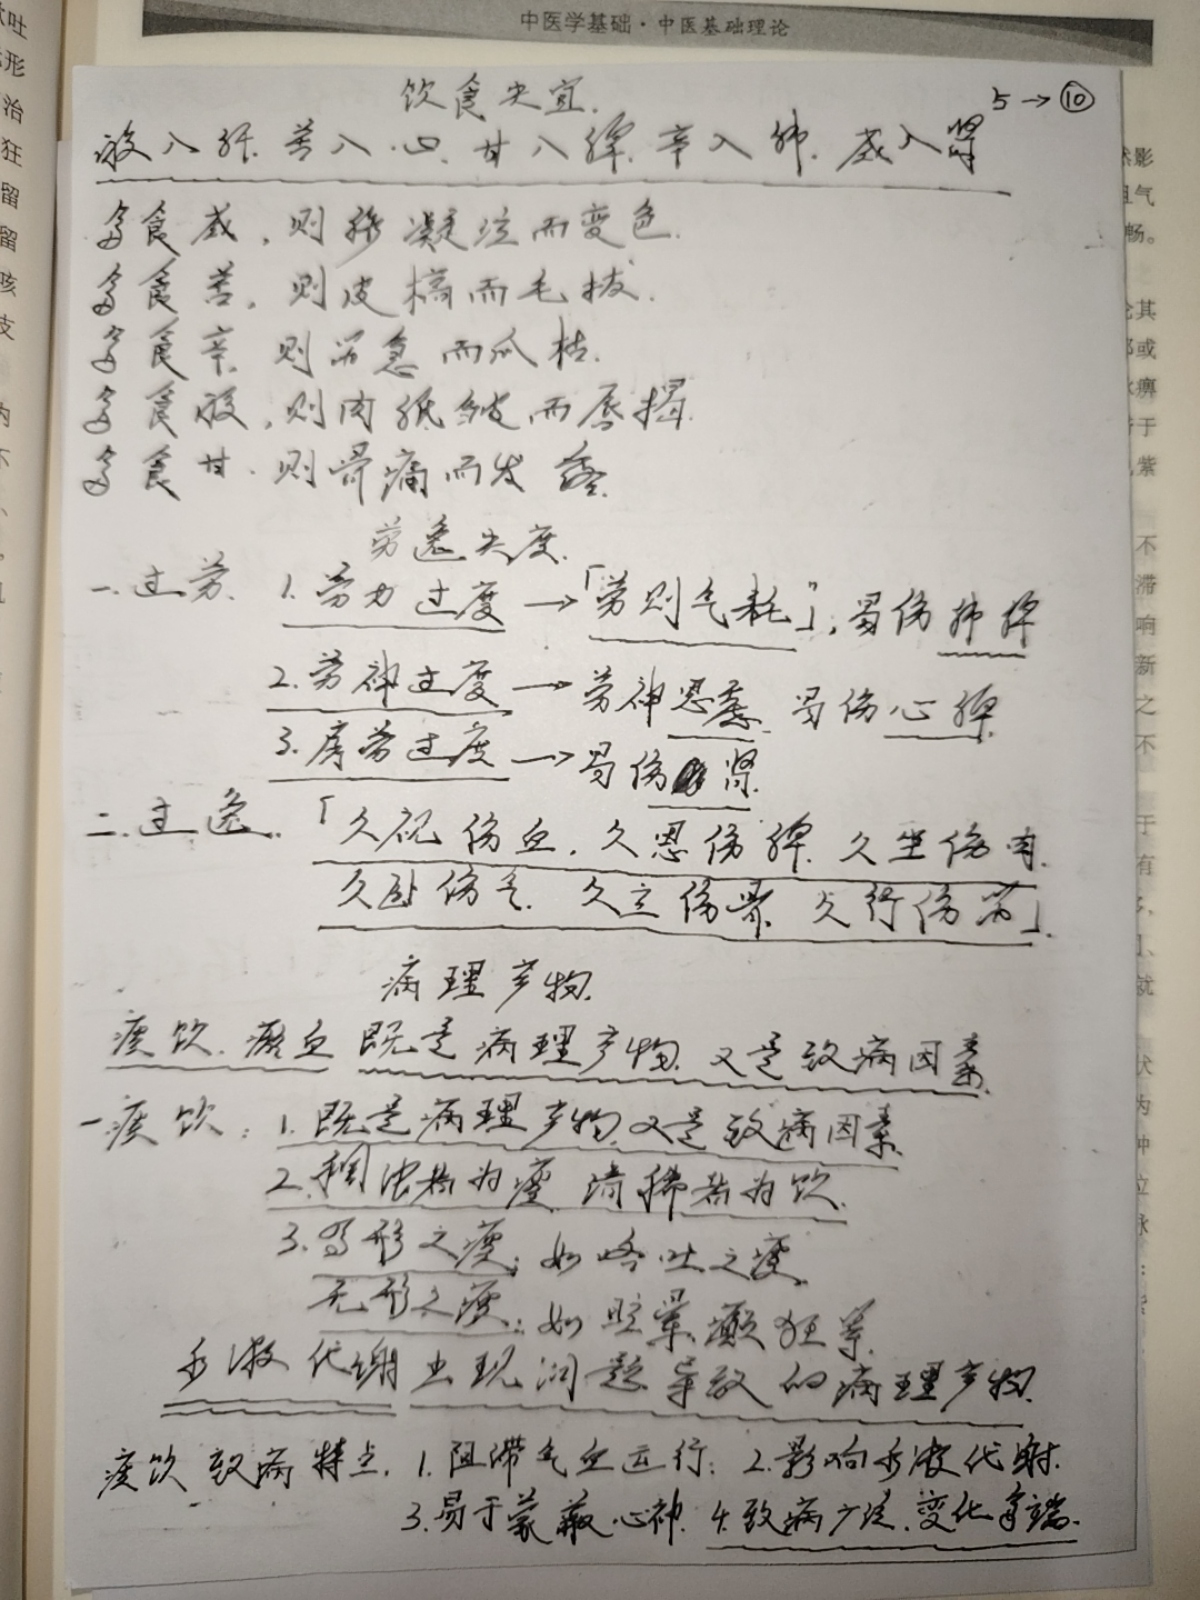 中医学基础·中医基础理论
饮食失宜.
5→⑩
酸入肝.苦入心.甘入脾.辛入肺.咸入肾
多食咸,则脉凝泣而变色.
多食苦,则皮槁而毛拔.
多食辛.则筋急而爪枯.
多食酸,则肉胝皱而唇揭.
多食甘.则骨痛而发落.
劳逸失度.
一.过劳. 1.劳力过度→「劳则气耗」,易伤肺脾
2.劳神过度→劳神思虑 易伤心脾.
3.房劳过度→易伤肾.
二.过逸.「久视伤血,久思伤脾.久坐伤肉.
久卧伤气.久立伤骨.久行伤筋」.
病理产物.
痰饮.瘀血既是病理产物.又是致病因素.
一痰饮:1.既是病理产物.又是致病因素.
2.稠浊者为痰 清稀者为饮.
3.有形之痰:如咯吐之痰
无形之痰:如眩晕.癫狂等.
水液代谢出现问题导致的病理产物.
痰饮致病特点.1.阻滞气血运行;2.影响水液代谢.
3.易于蒙蔽心神.4.致病广泛.变化多端.
吐
形
治
狂
留
留
咳
支
影
气
畅。
其
或
痹
于
紫
不
滞
响
新
之
不
于
有
就